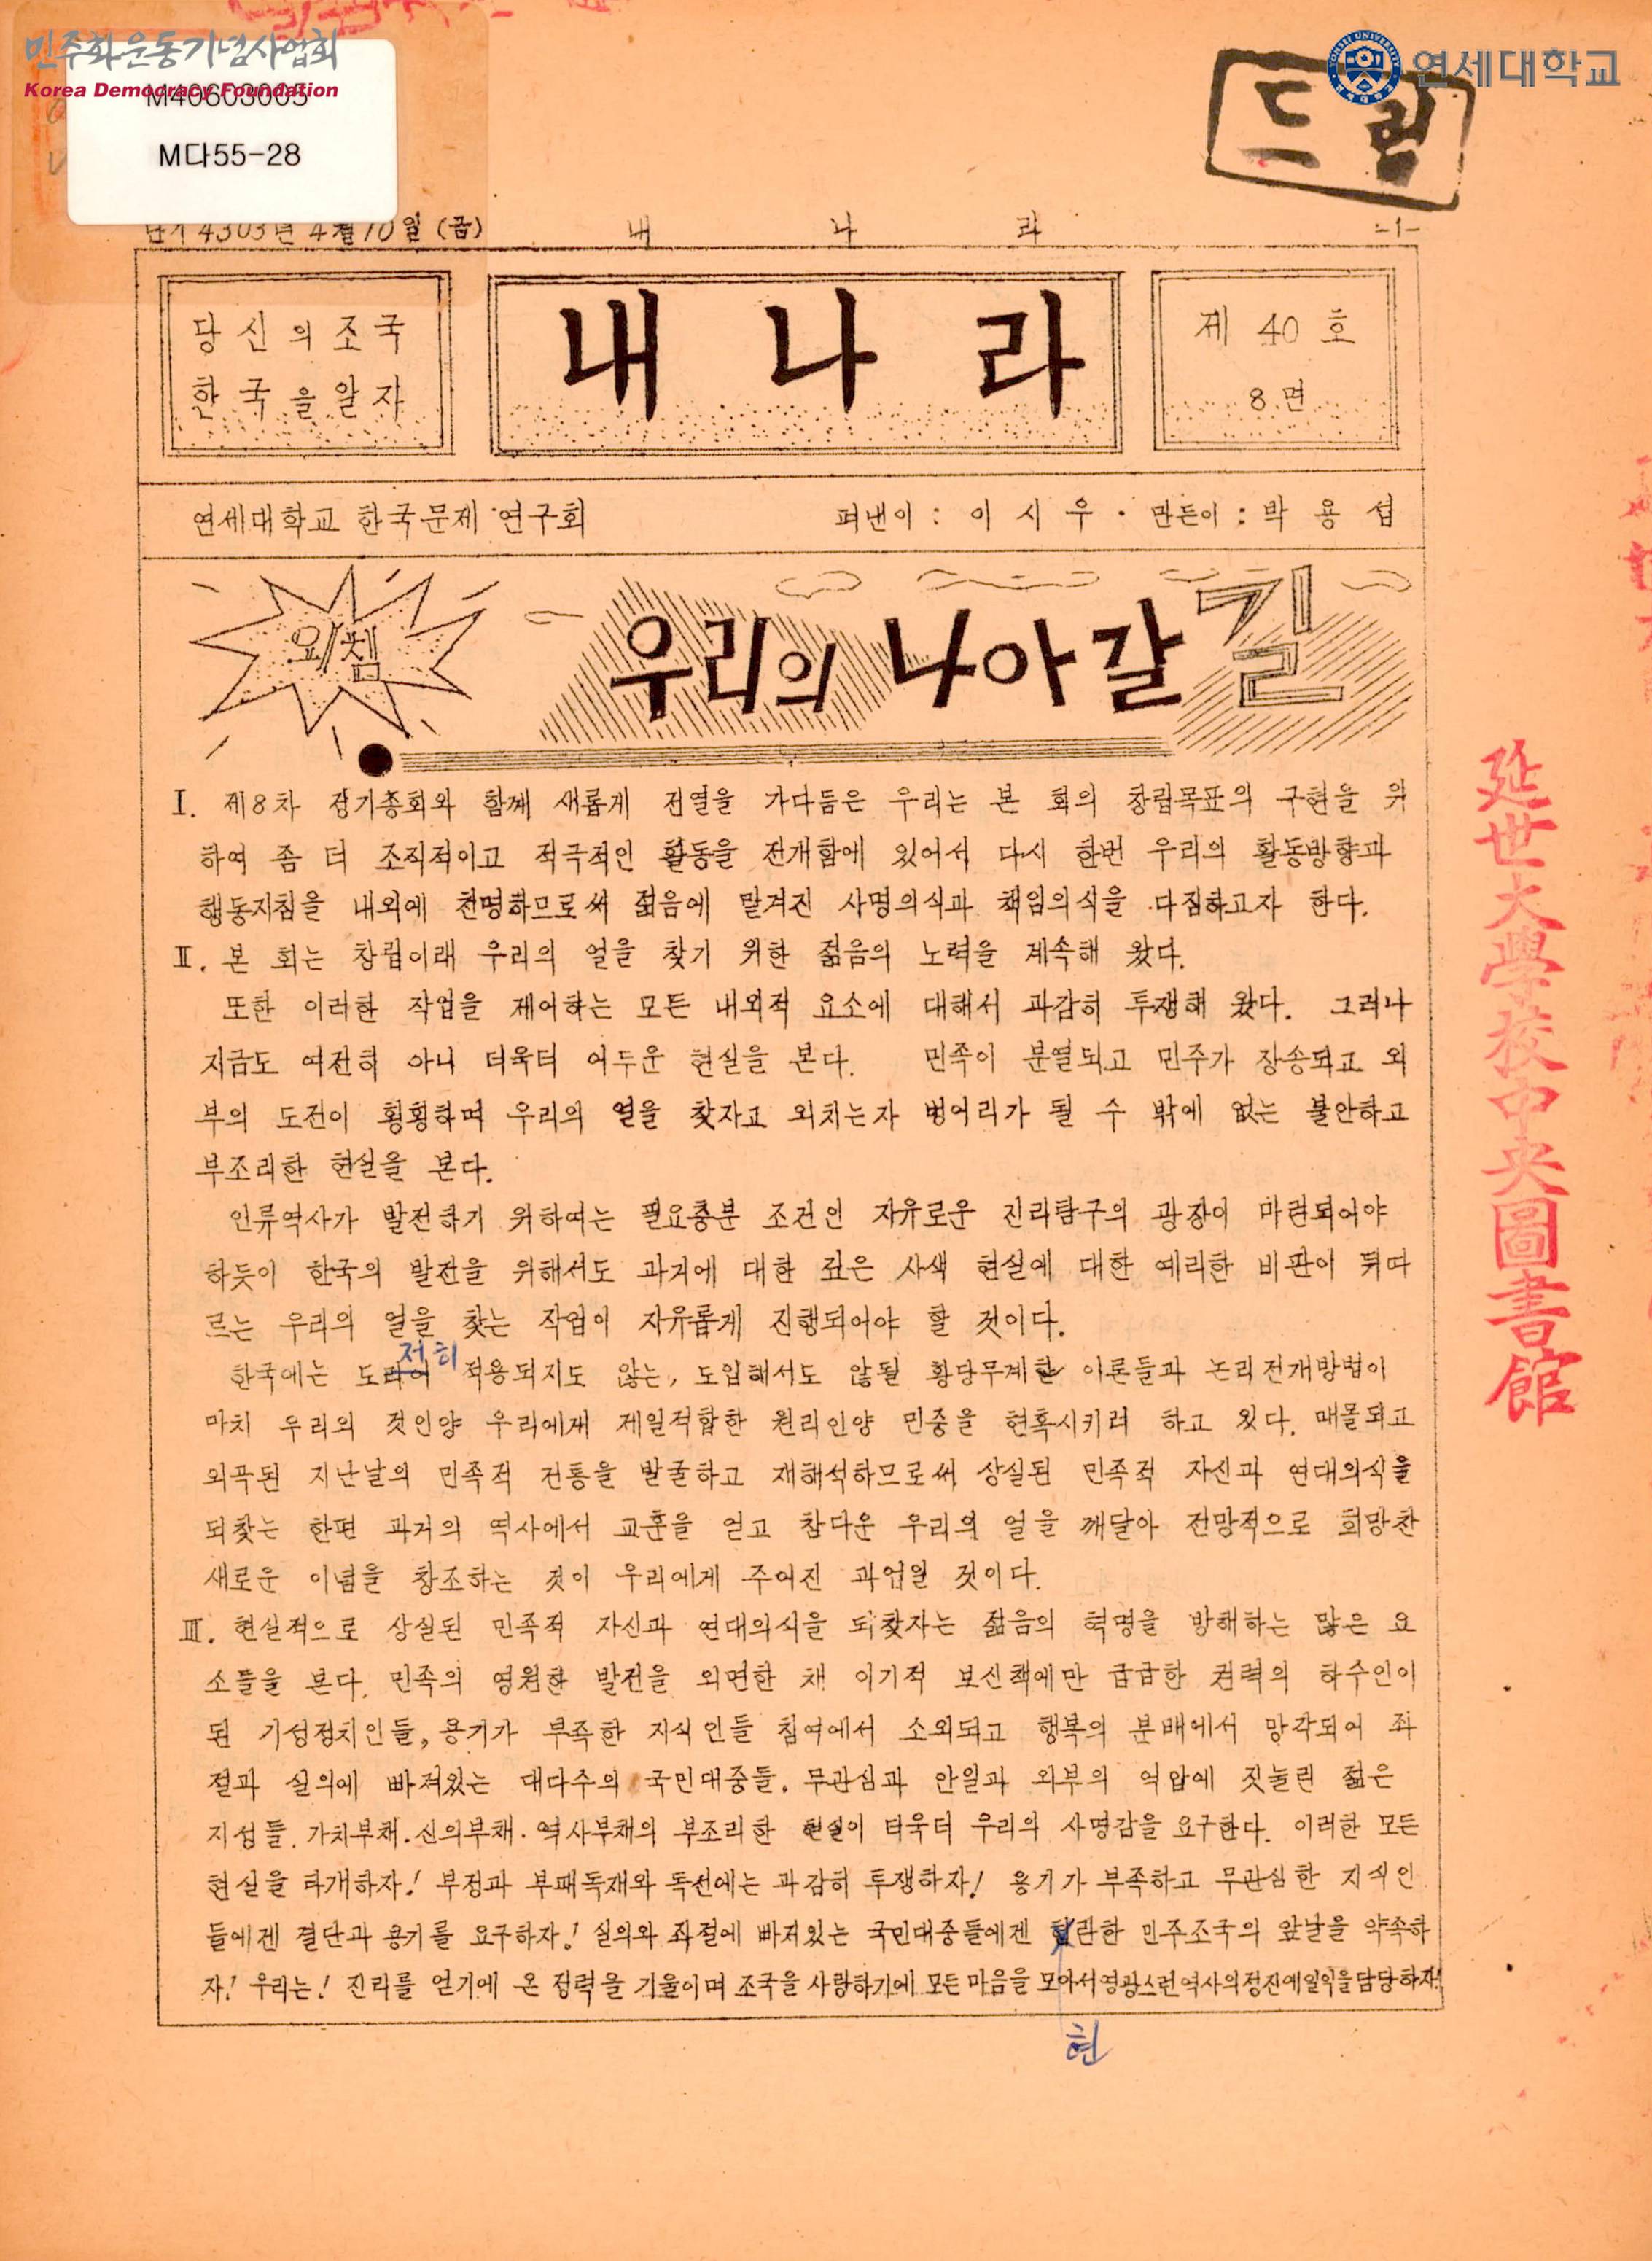 민주화운동기념사업회
Korea Democracy Foundation
M40603005
M다55-28
연세대학교
드림
단기 4303년 4월 10일 (금) 내 나 라 -1-
당신의 조국
한국을 알자
내 나 라
제 40 호
8 면
연세대학교 한국문제 연구회 펴낸이 : 이 시 우 · 만든이 : 박 용 섭
외침
우리의 나아갈 길
I. 제8차 정기총회와 함께 새롭게 전열을 가다듬은 우리는 본 회의 창립목표의 구현을 위
하여 좀 더 조직적이고 적극적인 활동을 전개함에 있어서 다시 한번 우리의 활동방향과
행동지침을 내외에 천명하므로써 젊음에 맡겨진 사명의식과 책임의식을 다짐하고자 한다.
II. 본 회는 창립이래 우리의 얼을 찾기 위한 젊음의 노력을 계속해 왔다.
또한 이러한 작업을 제어하는 모든 내외적 요소에 대해서 과감히 투쟁해 왔다. 그러나
지금도 여전히 아니 더욱더 어두운 현실을 본다. 민족이 분열되고 민주가 장송되고 외
부의 도전이 횡횡하며 우리의 얼을 찾자고 외치는자 벙어리가 될 수 밖에 없는 불안하고
부조리한 현실을 본다.
인류역사가 발전하기 위하여는 필요충분 조건인 자유로운 진리탐구의 광장이 마련되어야
하듯이 한국의 발전을 위해서도 과거에 대한 깊은 사색 현실에 대한 예리한 비판이 뒤따
르는 우리의 얼을 찾는 작업이 자유롭게 진행되어야 할 것이다.
전히
한국에는 도리어 적용되지도 않는, 도입해서도 않될 황당무계한 이론들과 논리전개방법이
마치 우리의 것인양 우리에게 제일적합한 원리인양 민중을 현혹시키려 하고 있다. 매몰되고
외곡된 지난날의 민족적 전통을 발굴하고 재해석하므로써 상실된 민족적 자신과 연대의식을
되찾는 한편 과거의 역사에서 교훈을 얻고 참다운 우리의 얼을 깨달아 전망적으로 희망찬
새로운 이념을 창조하는 것이 우리에게 주어진 과업일 것이다.
III. 현실적으로 상실된 민족적 자신과 연대의식을 되찾자는 젊음의 혁명을 방해하는 많은 요
소들을 본다. 민족의 영원한 발전을 외면한 채 이기적 보신책에만 급급한 권력의 하수인이
된 기성정치인들, 용기가 부족한 지식인들 침여에서 소외되고 행복의 분배에서 망각되어 좌
절과 실의에 빠져있는 대다수의 국민대중들. 무관심과 안일과 외부의 억압에 짓눌린 젊은
지성들. 가치부채. 신의부채. 역사부채의 부조리한 현실이 더욱더 우리의 사명감을 요구한다. 이러한 모든
현실을 타개하자! 부정과 부패독재와 독선에는 과감히 투쟁하자! 용기가 부족하고 무관심한 지식인
들에겐 결단과 용기를 요구하자! 실의와 좌절에 빠져있는 국민대중들에겐 란한 민주조국의 앞날을 약속하
자! 우리는! 진리를 얻기에 온 정력을 기울이며 조국을 사랑하기에 모든 마음을 모아서 영광스런 역사의 정진에 일익을 담당하자!
현
延世大學校中央圖書館